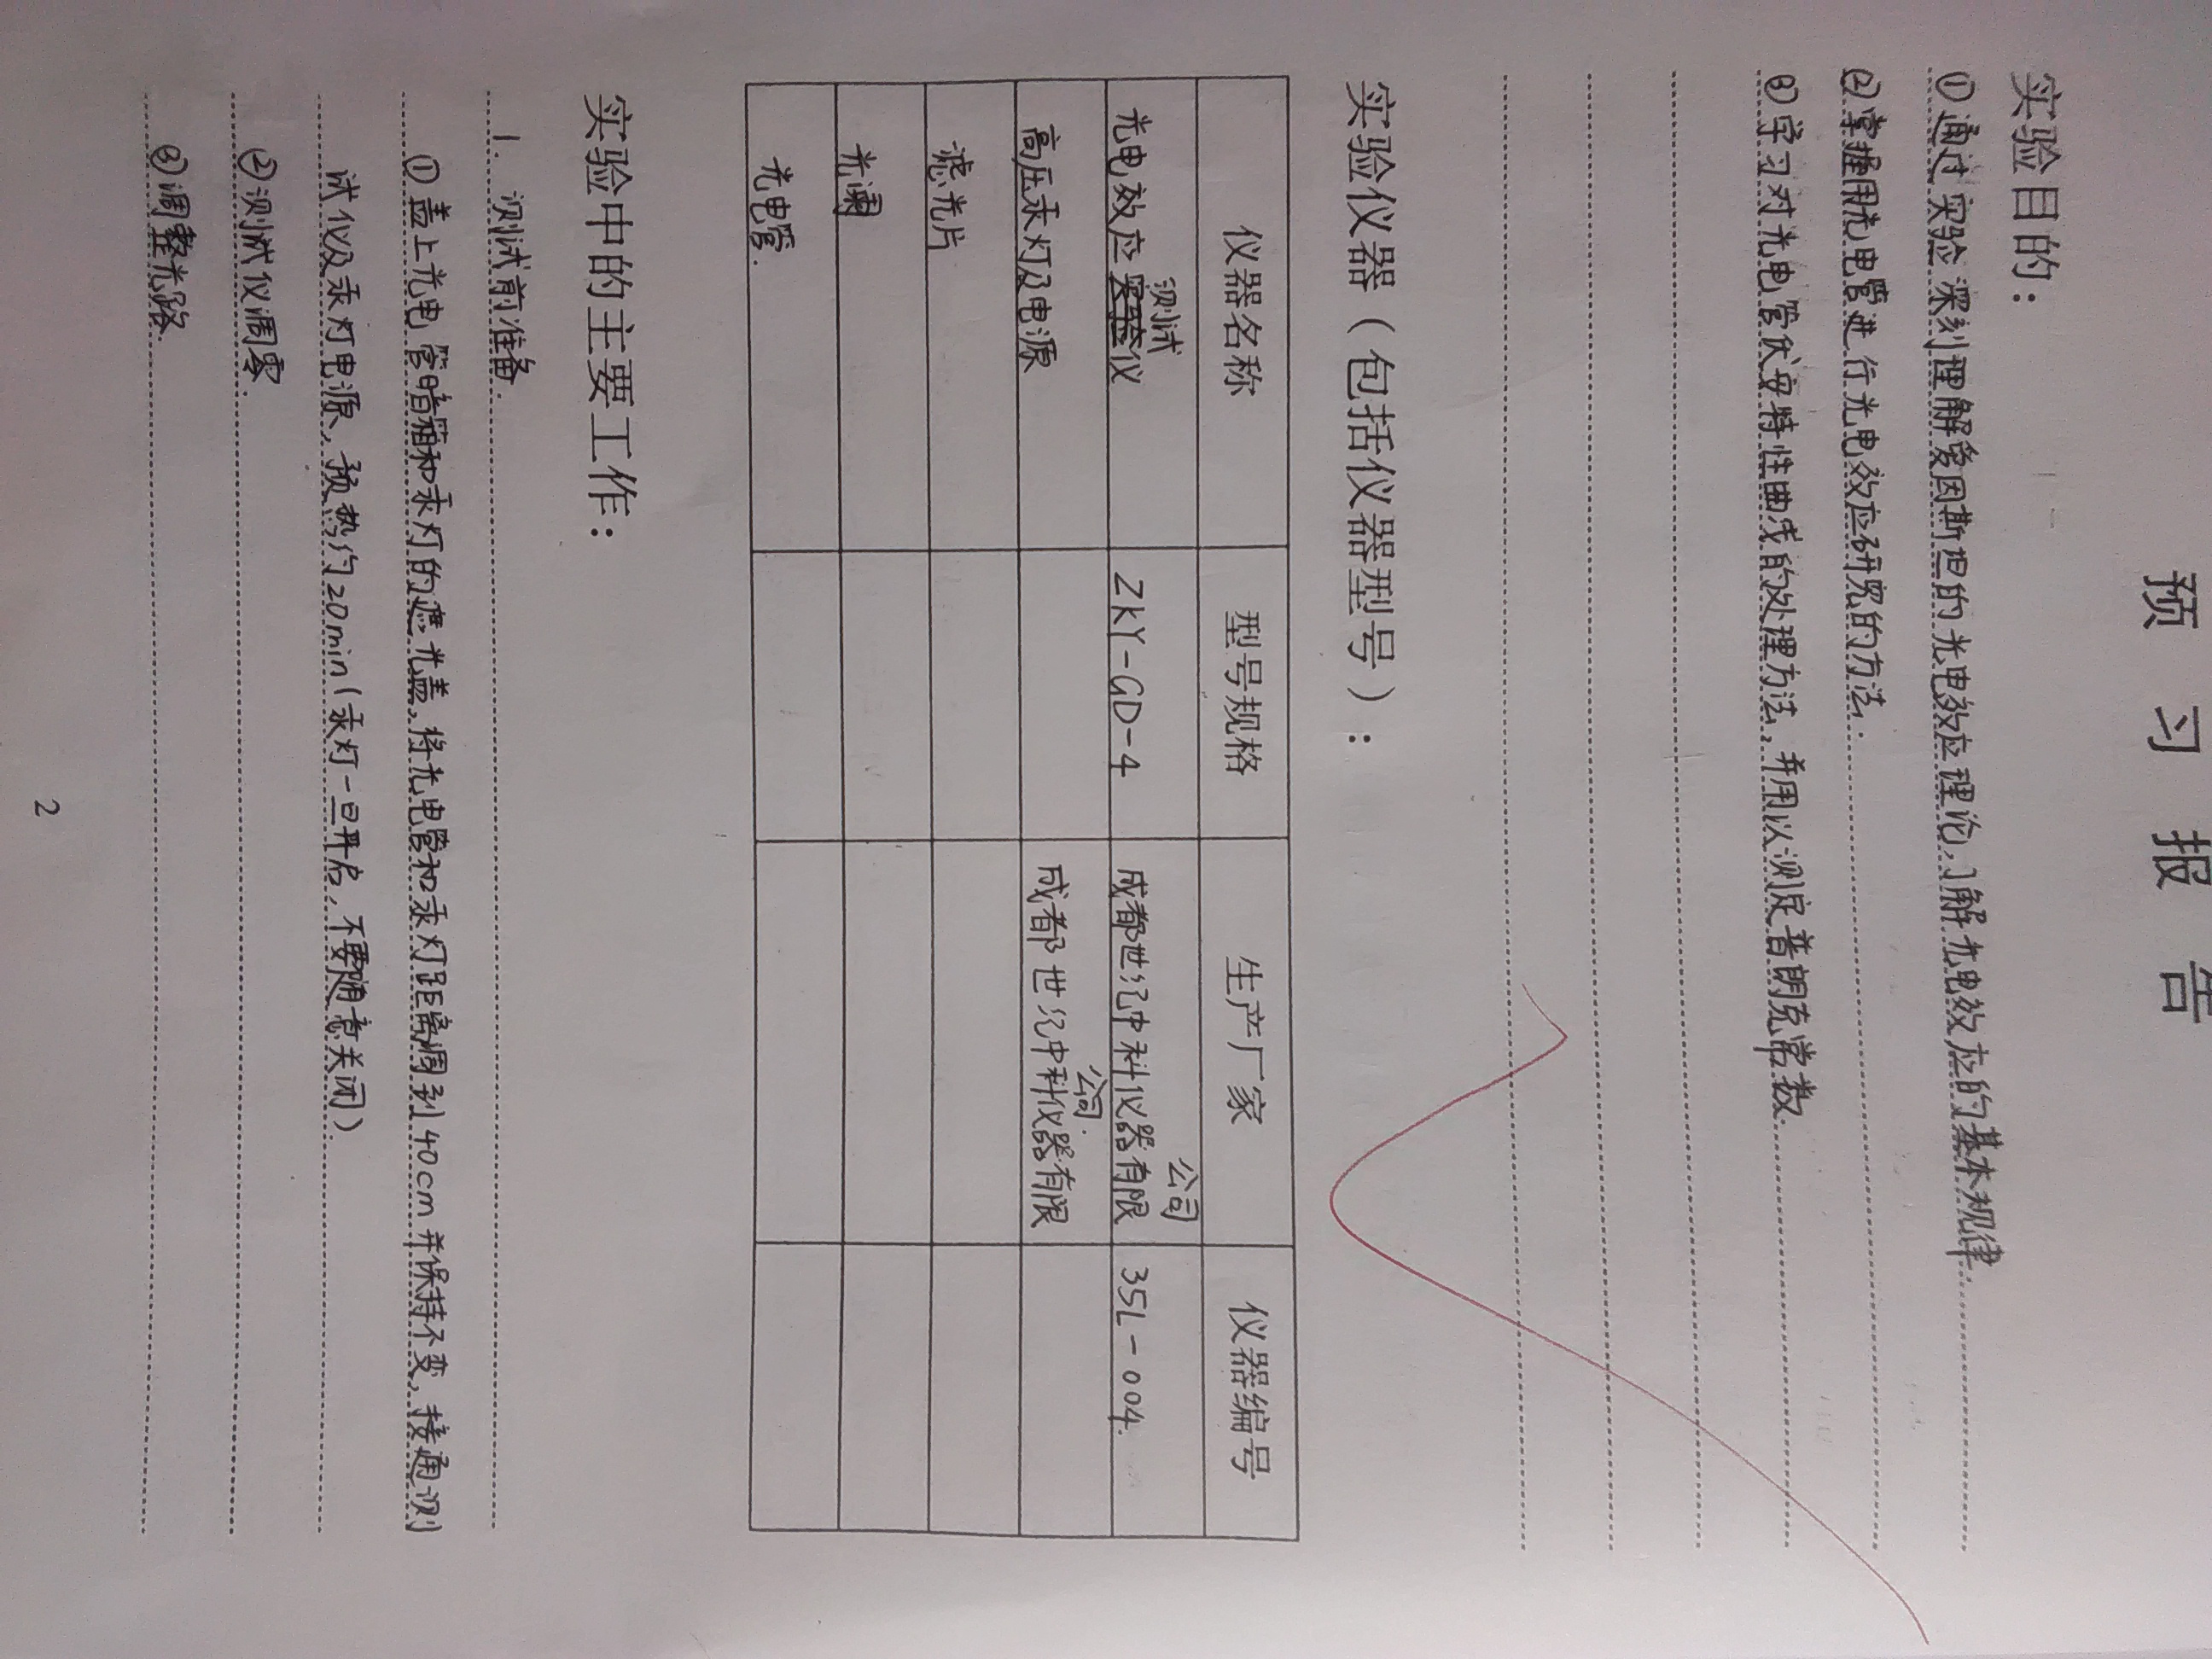 预 习 报 告
实验目的：
①通过实验深刻理解爱因斯坦的光电效应理论,了解光电效应的基本规律.
②掌握用光电管进行光电效应研究的方法.
③学习对光电管伏安特性曲线的处理方法,并用以测定普朗克常数.
实验仪器（包括仪器型号）：
仪器名称 型号规格 生产厂家 仪器编号
光电效应测试仪 ZKY-GD-4 成都世纪中科仪器有限公司 35L-004
高压汞灯及电源 成都世纪中科仪器有限公司.
滤光片
光阑
光电管.
实验中的主要工作：
1. 测试前准备.
①盖上光电管暗箱和汞灯的遮光盖,将光电管和汞灯距离调到40cm并保持不变,接通测
试仪及汞灯电源,预热约20min(汞灯一旦开启,不要随意关闭).
②测试仪调零.
③调整光路.
2